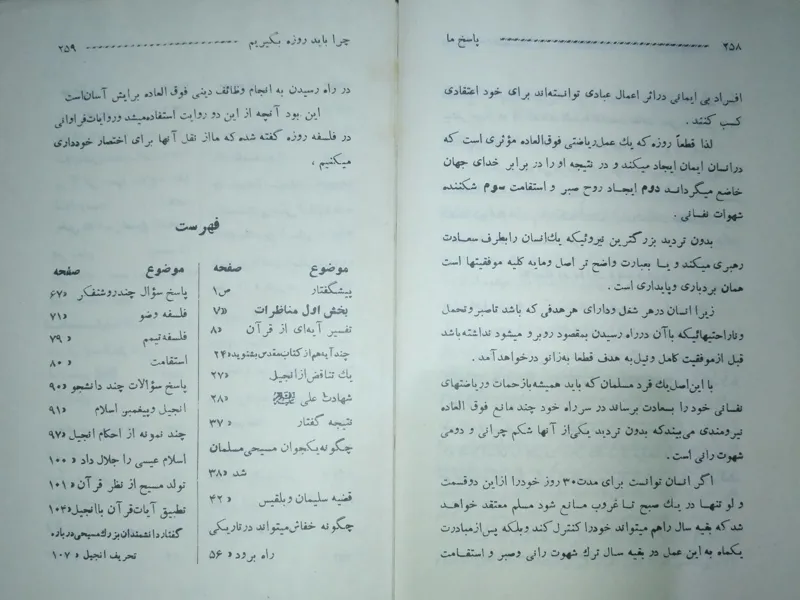 ۲۵۸ پاسخ ما
افراد بی ایمانی دراثر اعمال عبادی توانسته‌اند برای خود اعتقادی
کسب کنند .
لذا قطعاً روزه که یك عمل ریاضتی فوق‌العاده مؤثری است که
درانسان ایمان ایجاد میکند و در نتیجه او را در برابر خدای جهان
خاضع میگرداند دوم ایجاد روح صبر و استقامت سوم شکننده
شهوات نفسانی .
بدون تردید بزرگترین نیروئیکه یك‌انسان رابطرف سعادت
رهبری میکند و یا بعبارت واضح تر اصل ومایه کلیه موفقیتها است
همان بردباری وپایداری است .
زیرا انسان درهر شغل ودارای هرهدفی که باشد تاصبر وتحمل
وناراحتیهائیکه باآن درراه رسیدن بمقصود روبر و میشود نداشته‌باشد
قبل ازموفقیت کامل ونیل‌به هدف قطعا به‌زانو درخواهد آمد .
با این‌اصل‌یك فرد مسلمان که باید همیشه‌بازحمات وریاضتهای
نفسانی خود را بسعادت برساند در سر راه خود چند مانع فوق العاده
نیرومندی می‌بیندکه بدون تردید یکی‌از آنها شکم چرانی و دومی
شهوت رانی است .
اگر انسان توانست برای مدت ۳۰ روز خودرا ازاین دوقسمت
و لو تنها در یك صبح تا غروب مانع شود مسلم معتقد خواهد
شد که بقیه سال راهم میتواند خودرا کنترل کند وبلکه پس‌ازمبادرت
یکماه به این عمل در بقیه سال ترك شهوت رانی وصبر و استقامت
چرا باید روزه بگیریم ۲۵۹
در راه رسیدن به انجام وظائف دینی فوق العاده برایش آسان‌است
این بود آنچه از این دو روایت استفاده‌میشد وروایات‌فراوانی
در فلسفه روزه گفته شده که مااز نقل آنها برای اختصار خودداری
میکنیم ،
فهرست
موضوع صفحه
پیشگفتار ص۱
بخش اول مناظرات «۷
تفسیر آیه‌ای از قرآن «۸
چندآیه‌هم‌ازکتاب‌مقدس‌بشنوید«۲۴
یك تناقض ازانجیل «۲۷
شهادت علی «۲۸
نتیجه گفتار «۳۷
چگونه‌یکجوان مسیحی‌مسلمان
شد «۳۸
قضیه سلیمان وبلقیس «۴۲
چگونه خفاش میتواند درتاریکی
راه برود «۵۶
موضوع صفحه
پاسخ سؤال چندروشنفکر «۶۷
فلسفه وضو «۷۱
فلسفه‌تیمم «۷۹
استقامت «۸۰
پاسخ سؤالات چند دانشجو «۹۰
انجیل وپیغمبر اسلام «۹۱
چند نمونه از احکام انجیل «۹۷
اسلام عیسی را جلال داد «۱۰۰
تولد مسیح از نظر قرآن «۱۰۱
تطبیق آیات‌قرآن باانجیل«۱۰۴
گفتاردانشمندان‌بزرك‌مسیحی‌درباره
تحریف انجیل «۱۰۷